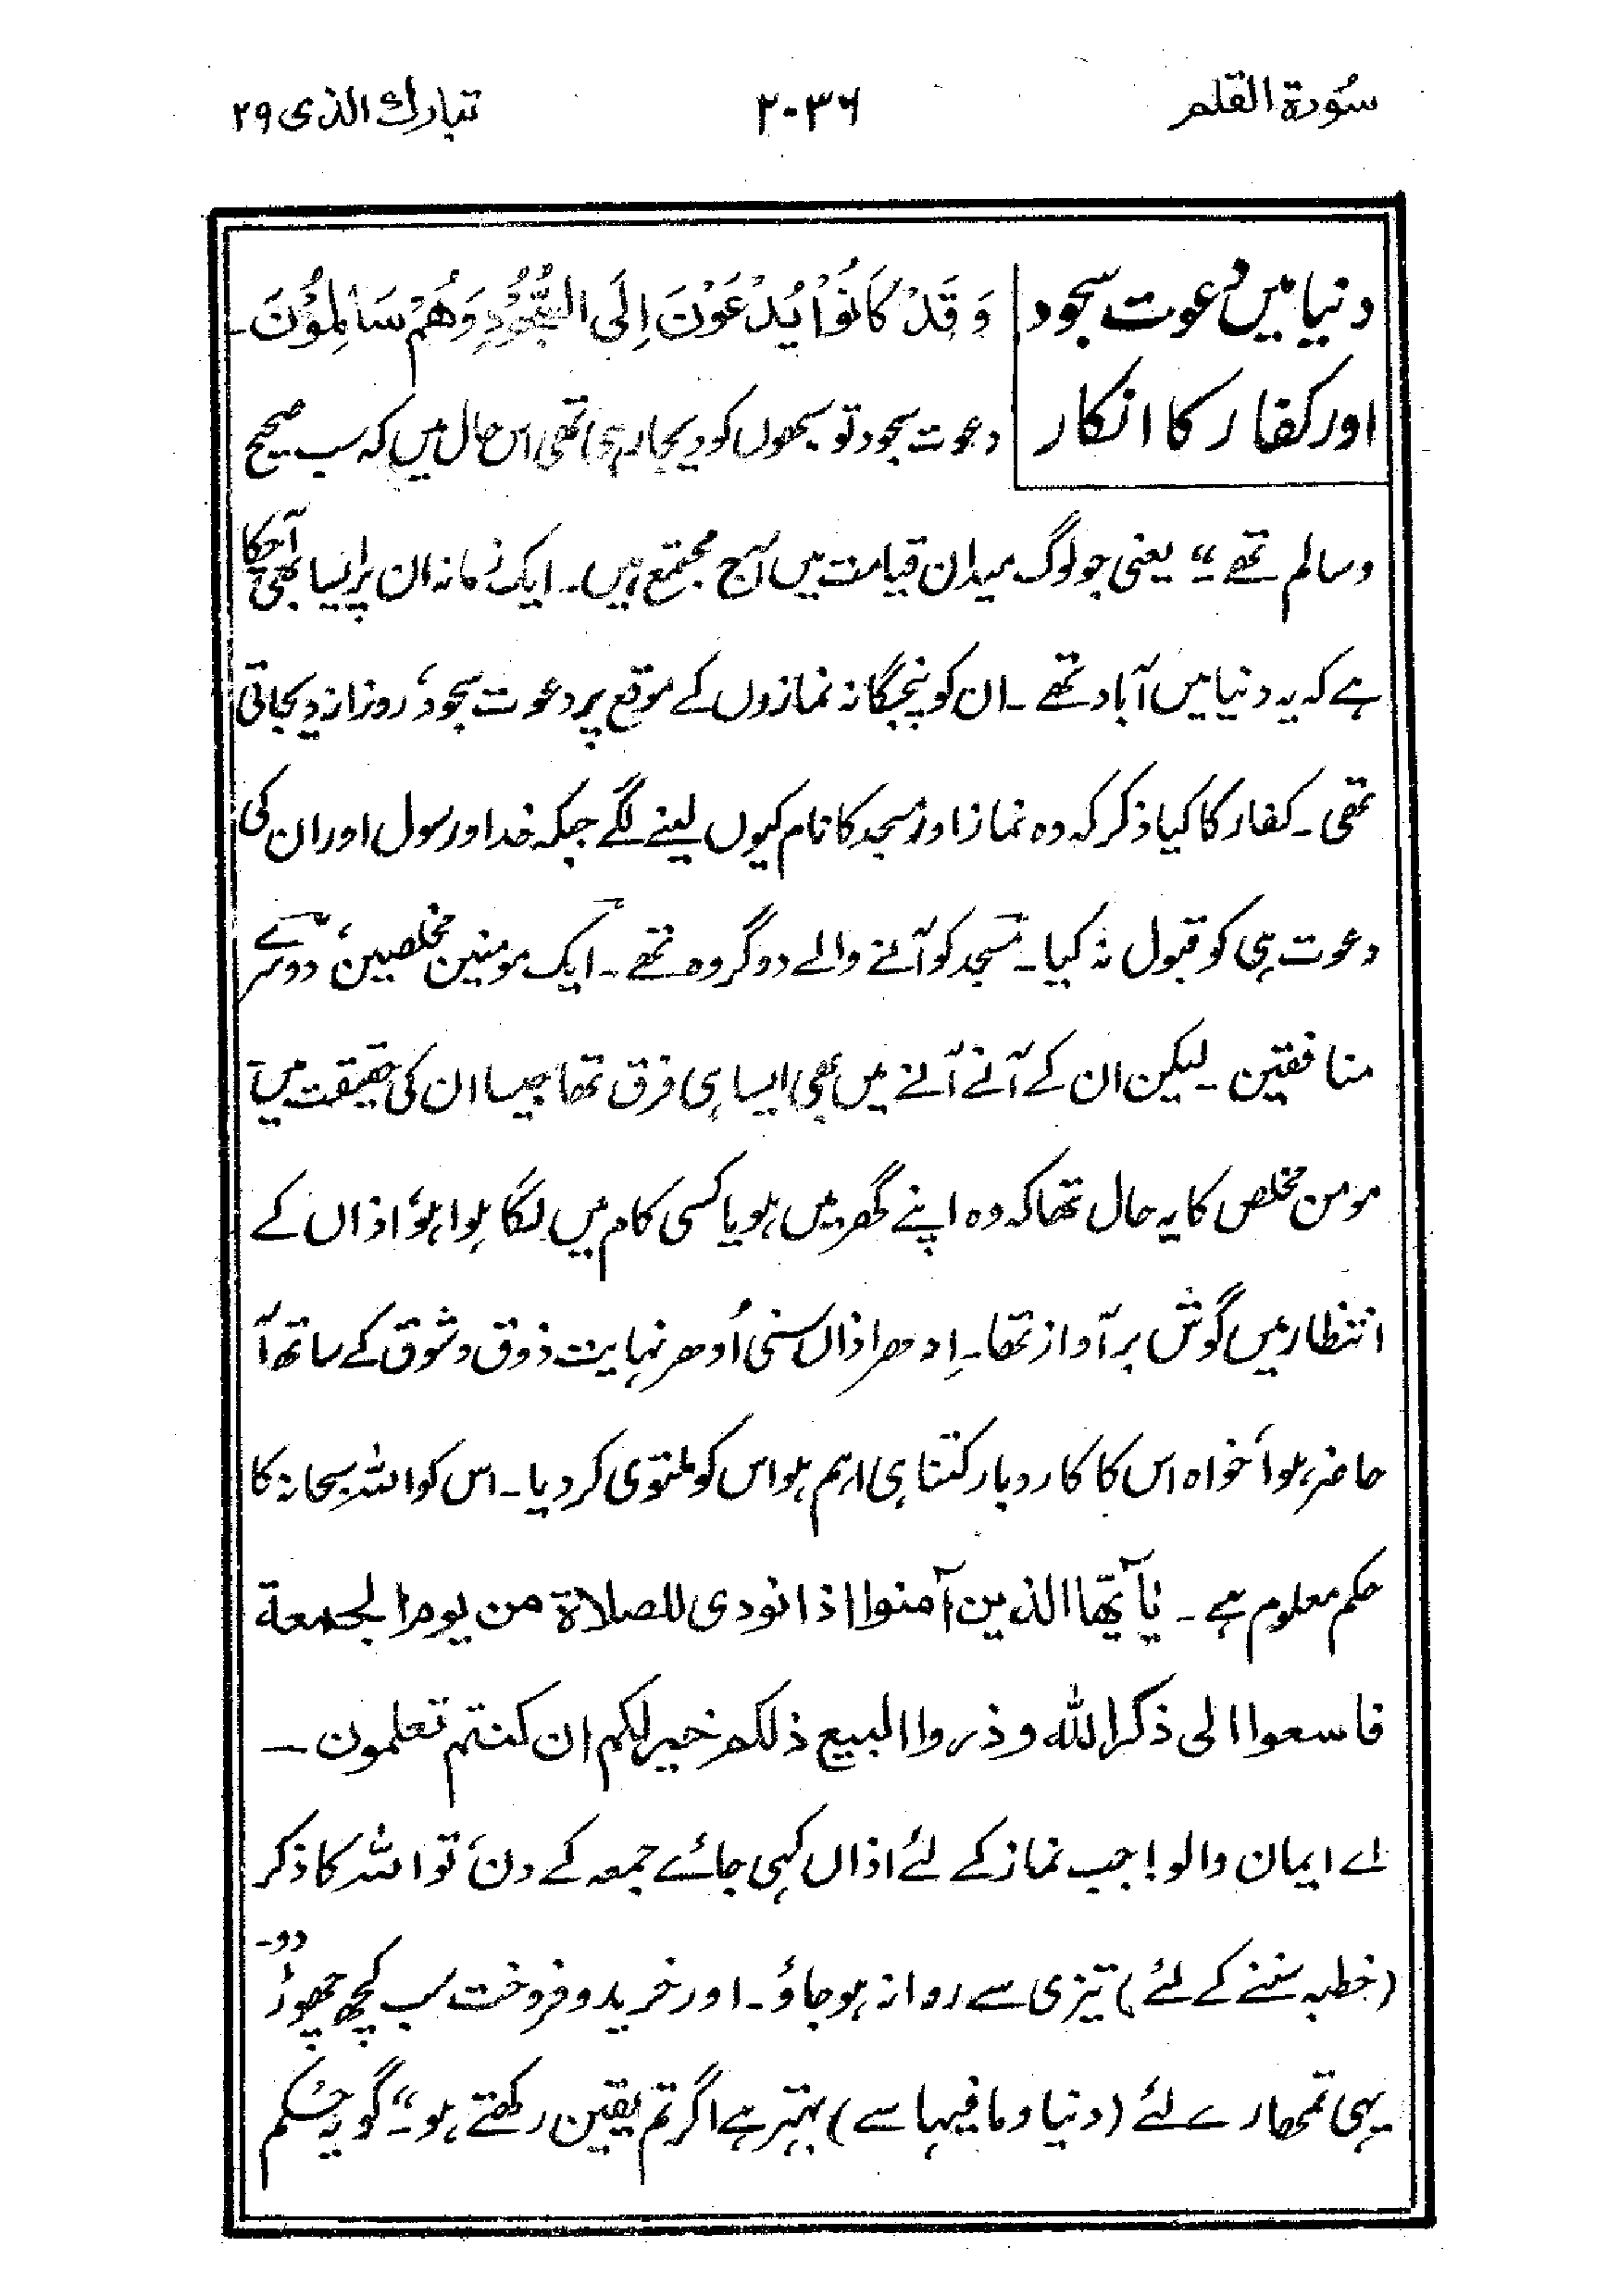 سُورة القلم ۲۰۳۶ تبارك الذی ۲۹
دنیا میں دعوت سجود
اور کفار کا انکار
وَقَدْ كَانُوْا يُدْعَوْنَ اِلَى السُّجُوْدِ وَهُمْ سَالِمُوْنَ۔
دعوت سجود تو سبھوں کو دیجارہی تھی اس حال میں کہ سب صحیح
و سالم تھے“ یعنی جو لوگ میدان قیامت میں آج مجتمع ہیں۔ ایک زمانہ ان پر ایسا بھی آچکا
ہے کہ یہ دنیا میں آباد تھے۔ ان کو پنجگانہ نمازوں کے موقع پر دعوت سجود، روزانہ دیجاتی
تھی۔ کفار کا کیا ذکر کہ وہ نماز اور مسجد کا نام کیوں لینے لگے جبکہ خدا اور رسول اور ان کی
دعوت ہی کو قبول نہ کیا۔ مسجد کو آنے والے دو گروہ تھے۔ ایک مومنین مخلصین، دوسرے
منافقین۔ لیکن ان کے آنے آنے میں بھی ایسا ہی فرق تھا جیسا ان کی حقیقت میں
مومن مخلص کا یہ حال تھا کہ وہ اپنے گھر میں ہو یا کسی کام میں لگا ہوا ہو، اذاں کے
انتظار میں گوش بر آواز تھا۔ اِدھر اذاں سنی اُدھر نہایت ذوق و شوق کے ساتھ آ
حاضر ہوا، خواہ اس کا کاروبار کتنا ہی اہم ہو اس کو ملتوی کردیا۔ اس کو اللہ سبحانہ کا
حکم معلوم ہے۔ یٰآیّھا الذین آمنوا اذا نودی للصلاة من یوم الجمعة
فاسعوا الی ذکر اللہ و ذروا البیع ذلکم خیر لکم ان کنتم تعلمون ــ
اے ایمان والو! جب نماز کے لئے اذاں کہی جائے جمعہ کے دن، تو اللہ کا ذکر
(خطبہ سننے کے لئے) تیزی سے روانہ ہو جاؤ۔ اور خرید و فروخت سب کچھ چھوڑ دو۔
یہی تمھارے لئے (دنیا و مافیہا سے) بہتر ہے اگر تم یقین رکھتے ہو“ گو یہ حکم